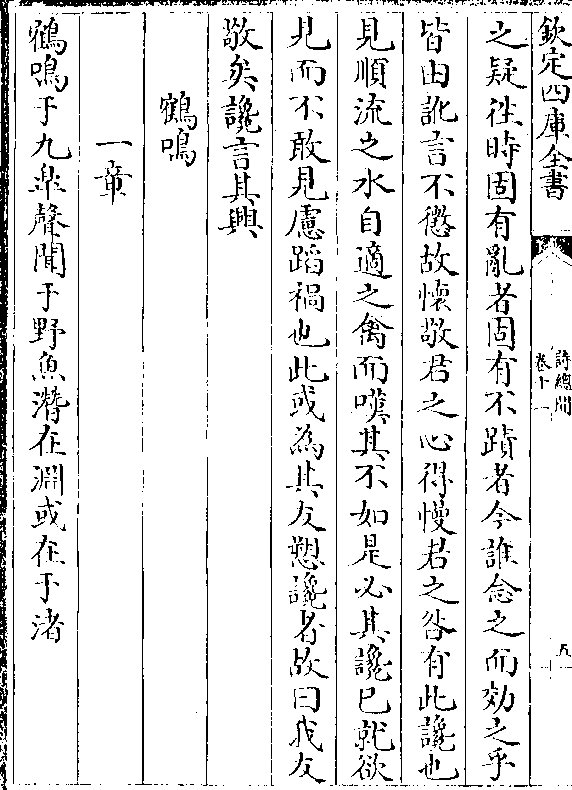 欽定四庫全書
詩總聞
卷十一
五
之疑往時固有亂者固有不蹟者今誰念之而効之乎
皆由訛言不懲故懷敬君之心得慢君之咎有此讒也
見順流之水自適之禽而嘆其不如是必其讒已就欲
見而不敢見慮蹈禍也此或為其友懇讒者故曰我友
敬矣讒言其興
鶴鳴
一章
鶴鳴于九臯聲聞于野魚潛在淵或在于渚